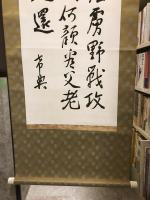 虜野戰攻
何顏看父老
還
希典